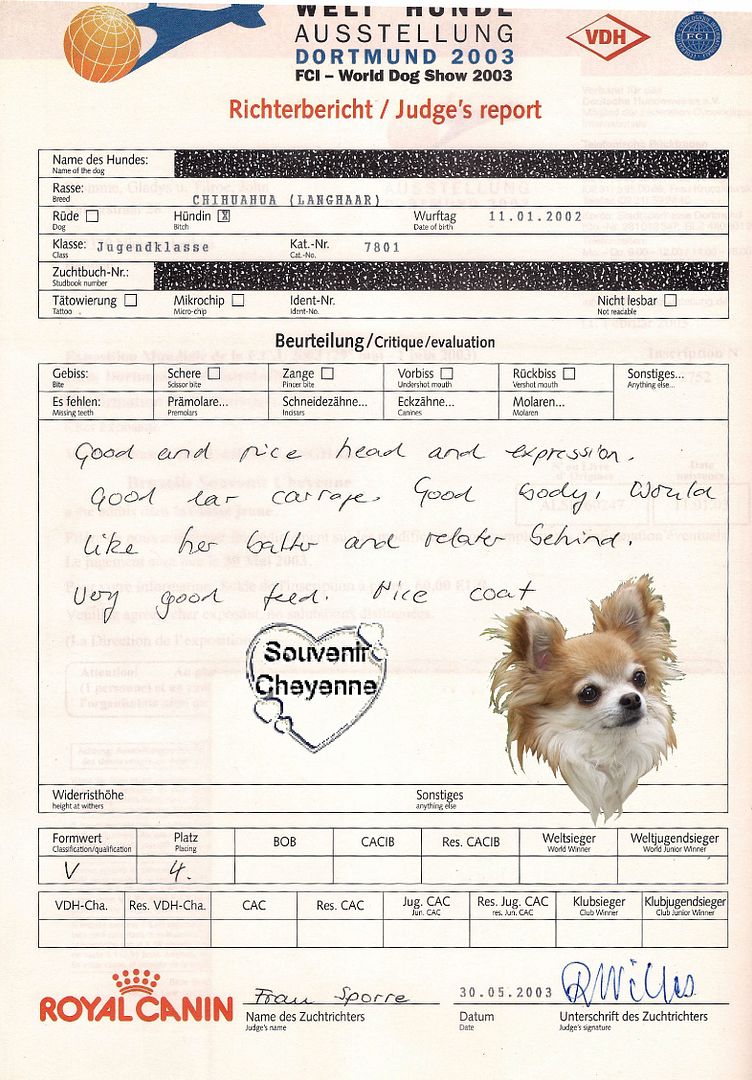 WELT HUNDE
AUSSTELLUNG
DORTMUND 2003
FCI – World Dog Show 2003
VDH
FCI
Richterbericht / Judge's report
Name des Hundes:
Name of the dog
Rasse:
Breed
CHIHUAHUA (LANGHAAR)
Rüde
Dog
Hündin X
Bitch
Wurftag 11.01.2002
Date of birth
Klasse: Jugendklasse
Class
Kat.-Nr. 7801
Cat.-No.
Zuchtbuch-Nr.:
Studbook number
Tätowierung
Tattoo
Mikrochip
Micro-chip
Ident-Nr.
Ident-No.
Nicht lesbar
Not readable
Beurteilung/Critique/evaluation
Gebiss:
Bite
Schere
Scissor bite
Zange
Pincer bite
Vorbiss
Undershot mouth
Rückbiss
Vershot mouth
Sonstiges...
Anything else...
Es fehlen:
Missing teeth
Prämolare...
Premolars
Schneidezähne...
Incisars
Eckzähne...
Canines
Molaren...
Molaren
Good and nice head and expression.
Good ear carrage. Good body, Would
like her and behind.
Very good feed. Nice coat
Souvenir
Cheyenne
Widerristhöhe
height at withers
Sonstiges
anything else
Formwert
Classification/qualification
Platz
Placing
BOB
CACIB
Res. CACIB
Weltsieger
World Winner
Weltjugendsieger
World Junior Winner
V
4.
VDH-Cha.
Res. VDH-Cha.
CAC
Res. CAC
Jug. CAC
Jun. CAC
Res. Jug. CAC
res. Jun. CAC
Klubsieger
Club Winner
Klubjugendsieger
Club Junior Winner
ROYAL CANIN
Frau Sporre
Name des Zuchtrichters
Judge's name
30.05.2003
Datum
Date
Unterschrift des Zuchtrichters
Judge's signature